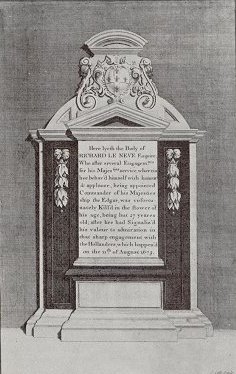 Here lyeth the Body of
RICHARD LE NEVE Esquire
Who after several Engagem.ts
for his Majes.ties service, where in
hee behav'd himself with honor
& applause, being appointed
Commander of his Majesties
ship the Edgar, was unfortu-
nately Kill'd in the flower of
his age, being but 27 years
old; after hee had Signaliz'd
his valour to admiration in
that sharp engagement with
the Hollanders, which happen'd
on the 11th of August 1673.